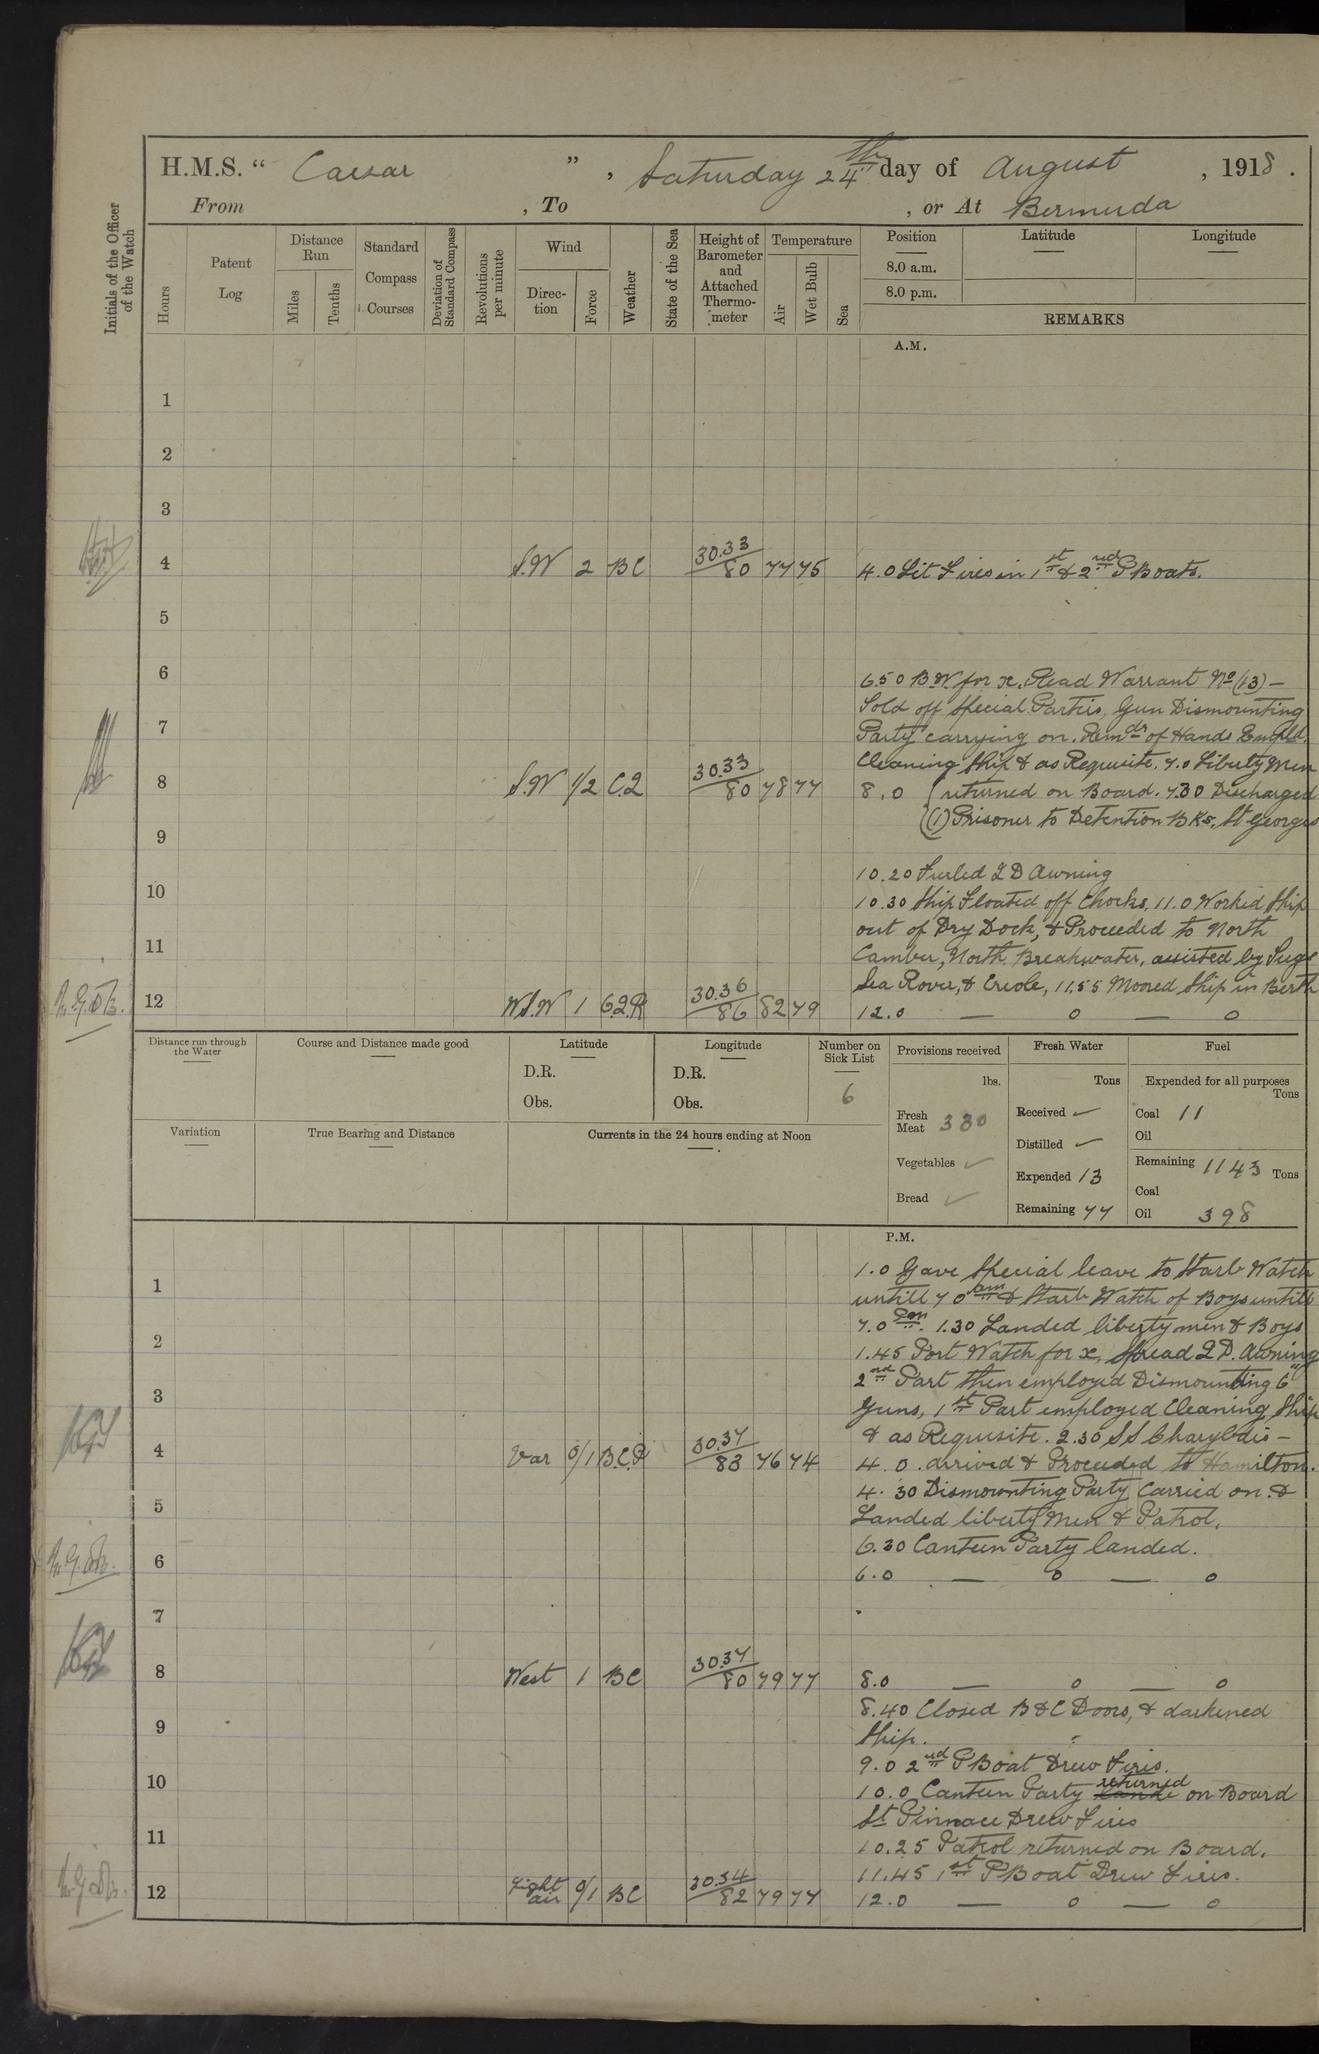 H.M.S. " Caesar ", Saturday 24th day of August, 1918.
From , To , or At Bermuda
Initials of the Officer of the Watch
Hours
Patent Log
Distance Run
Miles
Tenths
Standard Compass Courses
Deviation of Standard Compass
Revolutions per minute
Wind
Direc-tion
Force
Weather
State of the Sea
Height of Barometer and Attached Thermo-meter
Temperature
Air
Wet Bulb
Sea
Position
8.0 a.m.
8.0 p.m.
Latitude
Longitude
REMARKS
A.M.
1
2
3
4 S.W 2 BC 30.33/80 77 75 4.0 Lit Fires in 1st & 2nd PBoats.
5
6
6.50 B.W. for x. Read Warrant No (13) –
Told off Special Parties, Gun Dismounting
7
Party carrying on. Remdr of Hands Empld.
Cleaning Ship & as Requisite. 7.0 Liberty Men
8 S.W 1/2 C.2 30.33/80 78 77 8.0 returned on Board. 7.30 Discharged
(1) Prisoner to Detention Bks, St Georges
9
10.20 Furled Q D Awning
10
10.30 Ship Floated off Chocks, 11.0 Worked Ship
out of Dry Dock, & Proceeded to North
11
Camber, North Breakwater, assisted by Tugs
Sea Rover, & Creole, 11.55 Moored Ship in Berth
12 W.S.W 1 30.36/86 82 79 12.0 — o — o
Distance run through the Water
Course and Distance made good
Latitude
D.R.
Obs.
Longitude
D.R.
Obs.
Number on Sick List
6
Provisions received
lbs.
Fresh Meat 330
Vegetables ✓
Bread ✓
Fresh Water
Tons
Received ✓
Distilled ✓
Expended 13
Remaining 77
Fuel
Expended for all purposes
Tons
Coal 11
Oil
Remaining 1143 Tons
Coal
Oil 398
Variation
True Bearing and Distance
Currents in the 24 hours ending at Noon
P.M.
1.0 Gave Special leave to Starb Watch
1
untill 7 0 am & Starb Watch of Boys untill
7.0 pm. 1.30 Landed liberty men & Boys
2
1.45 Port Watch for x, Spread Q.D. Awning
2nd Part then employed Dismounting 6"
3
Guns, 1st Part employed Cleaning Ship
& as Requisite. 2.30 SS Charybdis –
4 Var 0/1 B.C.P 30.37/83 76 74 4.0. arrived & Proceeded to Hamilton.
4.30 Dismounting Party Carried on &
5
Landed liberty Men & Patrol.
6.30 Canteen Party landed.
6 6.0 — o — o
7
8 West 1 BC 30.37/80 79 77 8.0 — o — o
8.40 Closed B & C Doors, & darkened
9
Ship.
9.0 2nd PBoat Drew Fires.
10
10.0 Canteen Party returned on Board
St Pinnace Drew Fires
11
10.25 Patrol returned on Board.
11.45 1st PBoat Drew Fires.
12 Light air 0/1 BC 30.34/82 79 77 12.0 — o — o